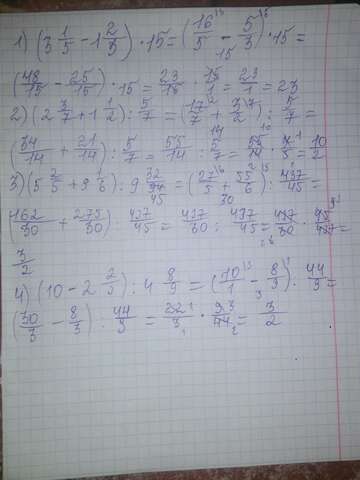 1) (3 1/5 - 1 2/3) · 15 = (16/5 - 5/3) · 15 =
(48/15 - 25/15) · 15 = 23/15 · 15/1 = 23/1 = 23
2) (2 3/7 + 1 1/2) : 5/7 = (17/7 + 3/2) : 5/7 =
(34/14 + 21/14) : 5/7 = 55/14 : 5/7 = 55/14 · 7/5 = 10/2
3) (5 2/5 + 9 1/6) : 9 32/45 = (27/5 + 55/6) : 437/45 =
(162/30 + 275/30) : 437/45 = 437/30 : 437/45 = 437/30 · 45/437 =
3/2
4) (10 - 2 2/3) : 4 8/9 = (10/1 - 8/3) : 44/9 =
(30/3 - 8/3) : 44/9 = 22/3 · 9/44 = 3/2